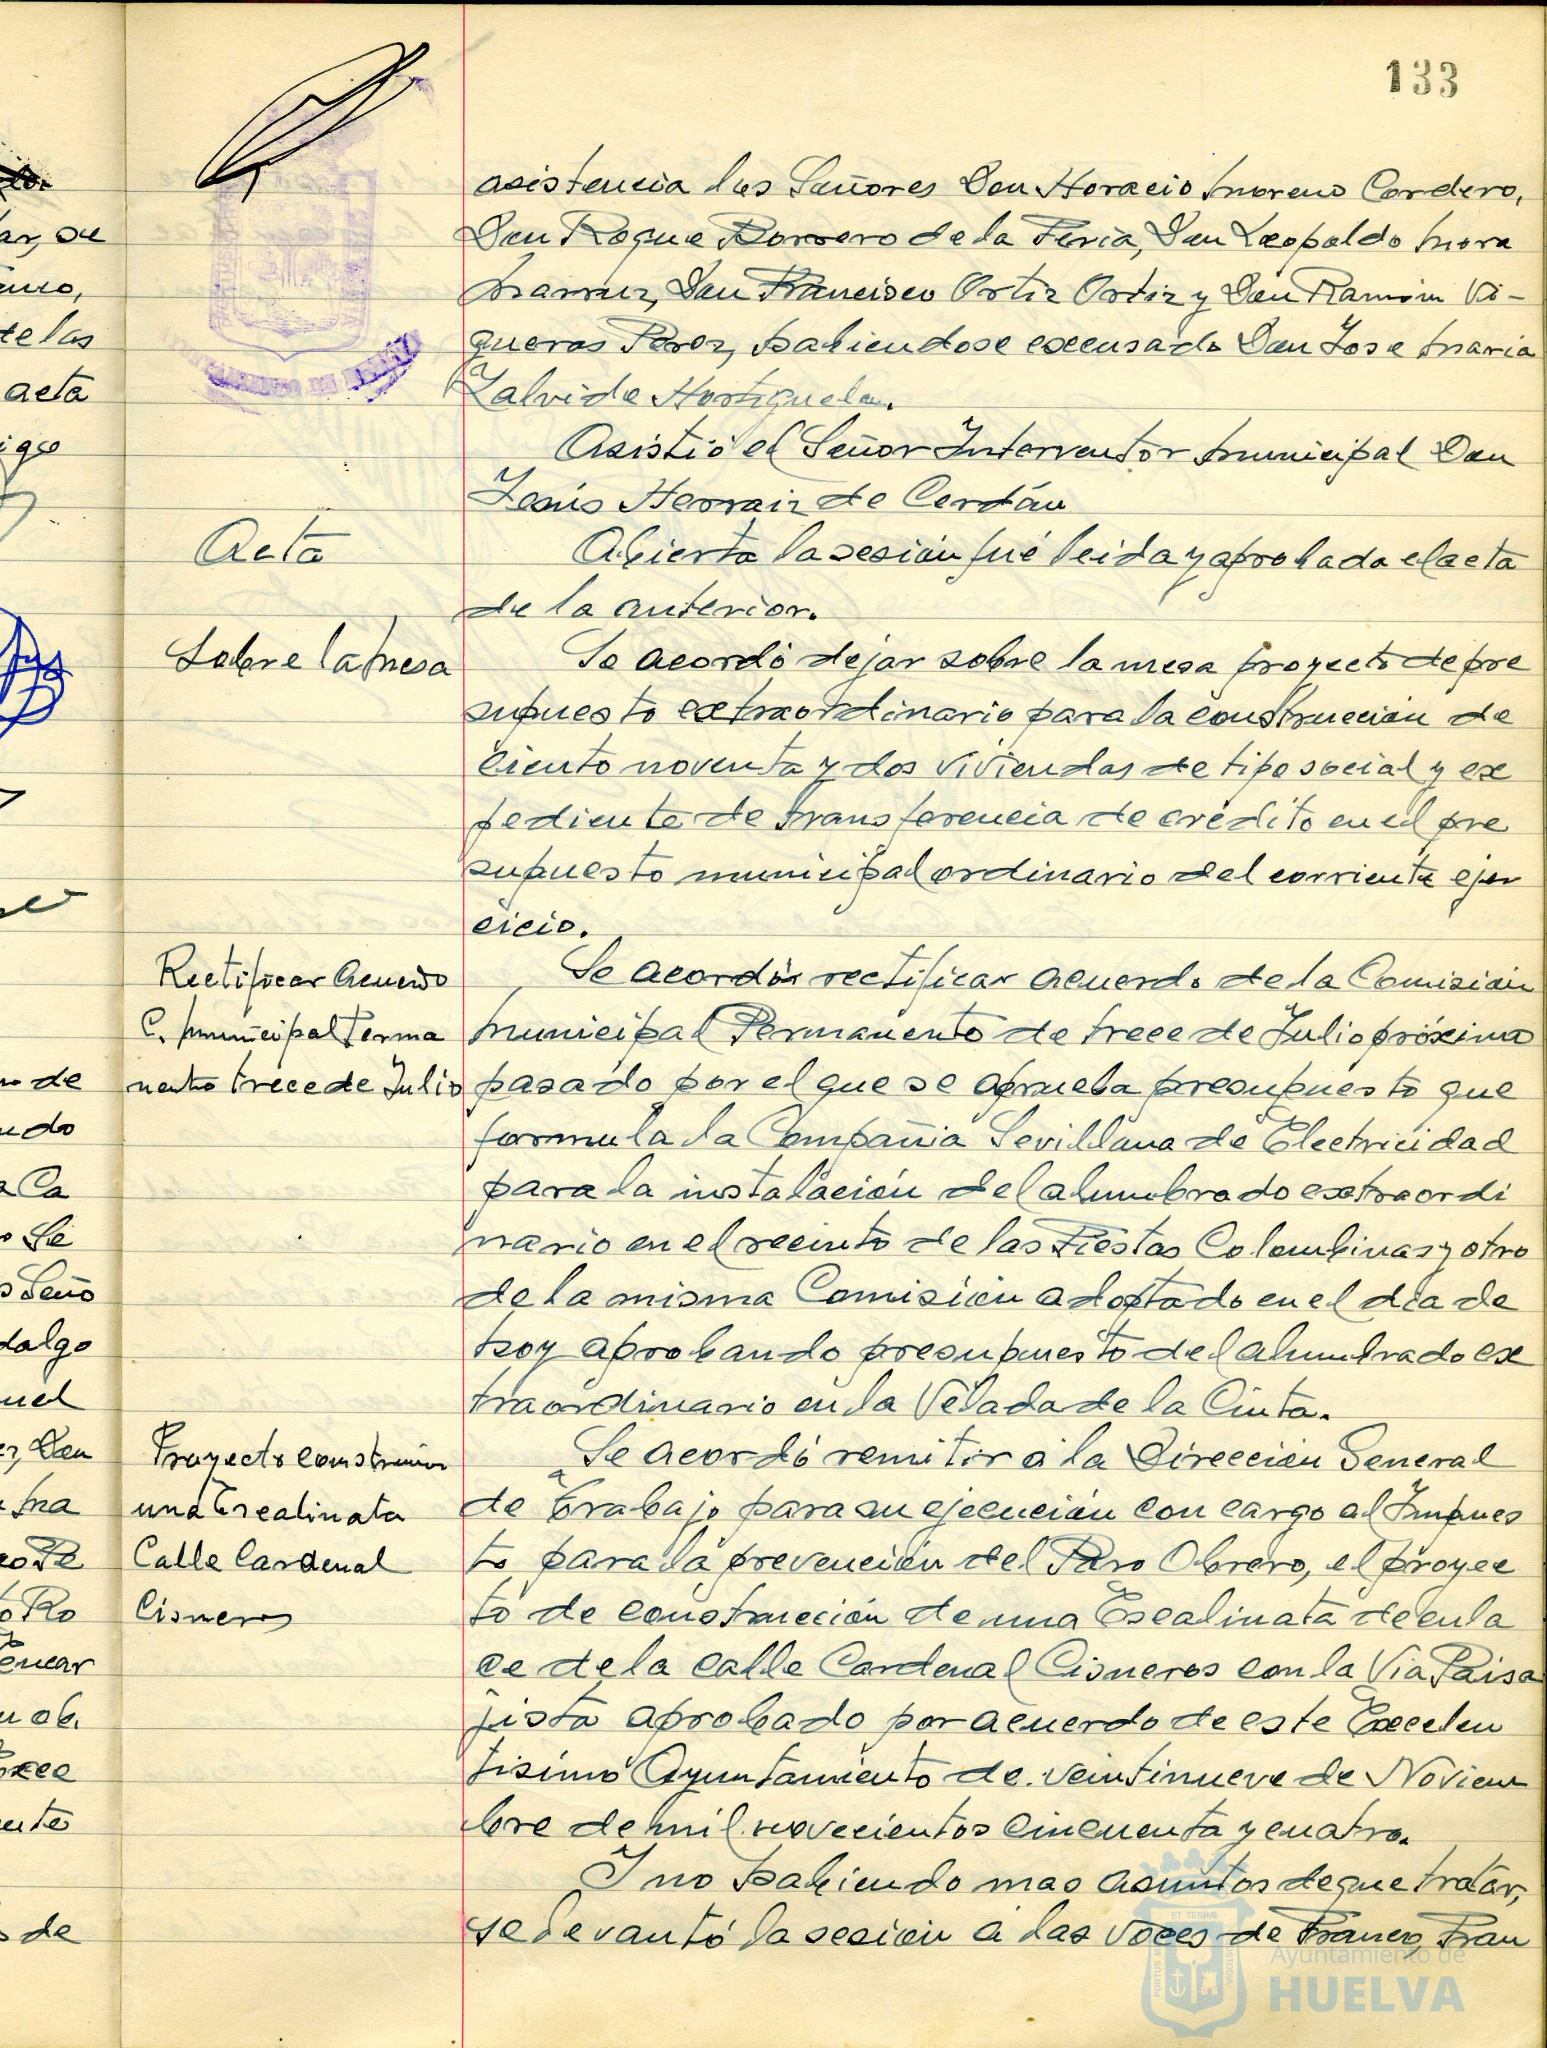 133
asistencia los Señores Don Horacio Moreno Cordero,
Don Roque Borrero de la Feria, Don Leopoldo Mora
Don Francisco Ortiz Ortiz y Don Ramón Vi-
gueras Perez, habiendose excusado Don Jose Maria
Zalvide Hortiguela.
Asistió el Señor Interventor Municipal Don
Jesús Herraiz de Cerdán
Acta
Abierta la sesión fué leida y aprobada el acta
de la anterior.
Sobre la Mesa
Se acordó dejar sobre la mesa proyecto de pre
supuesto extraordinario para la construccion de
ciento noventa y dos viviendas de tipo social y ex
pediente de transferencia de crédito en el pre
supuesto municipal ordinario del corriente ejer
cicio.
Rectificar Acuerdo
C. Municipal Perma
nente trece de Julio
Se acordó rectificar acuerdo de la Comisión
Municipal Permanente de trece de Julio próximo
pasado por el que se aprueba presupuesto que
formula la Compañia Sevillana de Electricidad
para la instalación del alumbrado extraordi
nario en el recinto de las Fiestas Colombinas y otro
de la misma Comisión adoptado en el dia de
hoy aprobando presupuesto del alumbrado ex
traordinario en la Velada de la Cinta.
Proyecto construccion
una Escalinata
Calle Cardenal
Cisneros
Se acordó remitir a la Dirección General
de Trabajo para su ejecución con cargo al Impues
to para la prevención del Paro Obrero, el proyec
to de construcción de una Escalinata de enla
ce de la calle Cardenal Cisneros con la Via Paisa
jista aprobado por acuerdo de este Excelen
tisimo Ayuntamiento de veintinueve de Noviem
bre de mil novecientos cincuenta y cuatro.
Y no habiendo mas asuntos de que tratar,
se levantó la sesión a las voces de Franco, Fran
Ayuntamiento de
HUELVA